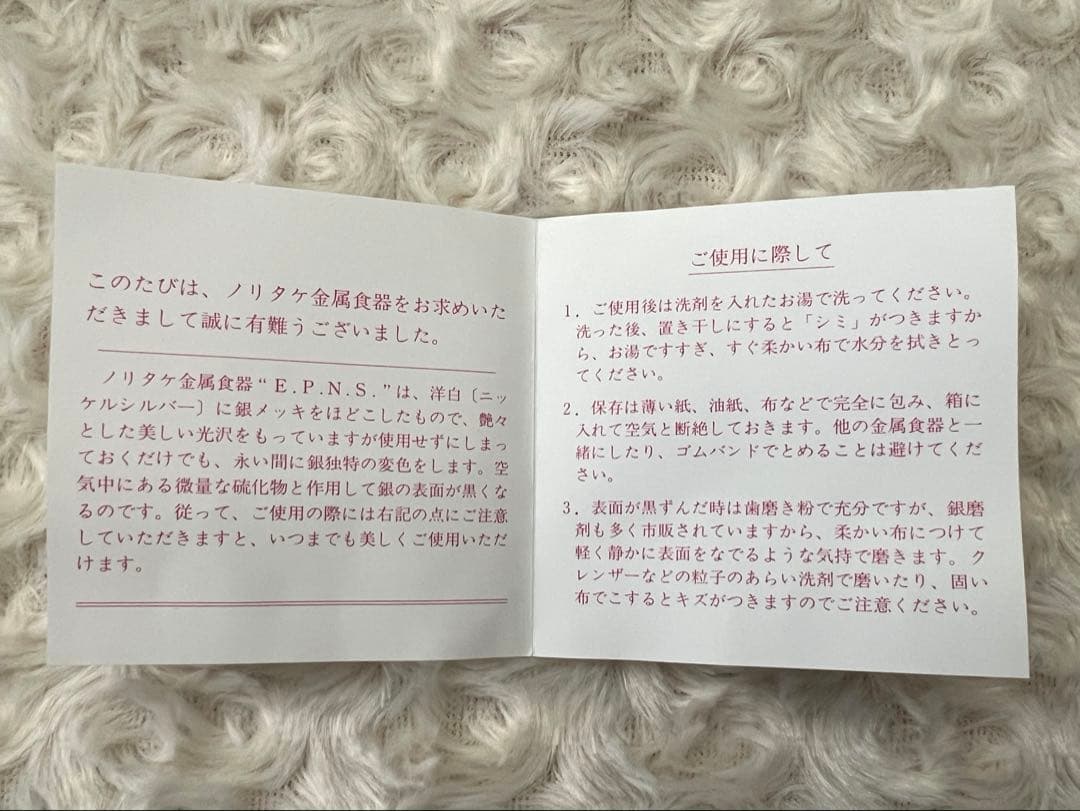 このたびは、ノリタケ金属食器をお求めいた
だきまして誠に有難うございました。
ノリタケ金属食器“E.P.N.S.”は、洋白〔ニッ
ケルシルバー〕に銀メッキをほどこしたもので、艶々
とした美しい光沢をもっていますが使用せずにしまっ
ておくだけでも、永い間に銀独特の変色をします。空
気中にある微量な硫化物と作用して銀の表面が黒くな
るのです。従って、ご使用の際には右記の点にご注意
していただきますと、いつまでも美しくご使用いただ
けます。
ご使用に際して
1．ご使用後は洗剤を入れたお湯で洗ってください。
洗った後、置き干しにすると「シミ」がつきますか
ら、お湯ですすぎ、すぐ柔かい布で水分を拭きとっ
てください。
2．保存は薄い紙、油紙、布などで完全に包み、箱に
入れて空気と断絶しておきます。他の金属食器と一
緒にしたり、ゴムバンドでとめることは避けてくだ
さい。
3．表面が黒ずんだ時は歯磨き粉で充分ですが、銀磨
剤も多く市販されていますから、柔かい布につけて
軽く静かに表面をなでるような気持で磨きます。ク
レンザーなどの粒子のあらい洗剤で磨いたり、固い
布でこするとキズがつきますのでご注意ください。